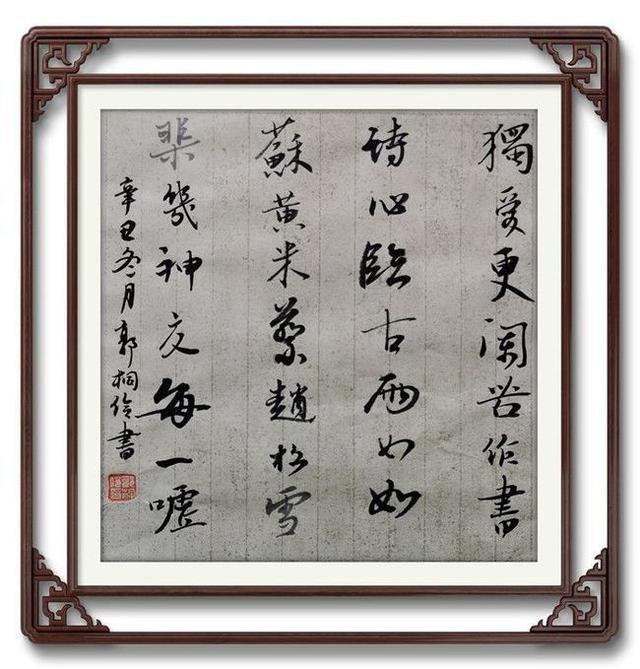 獨愛更闌作書
詩心臨古兩如如
蘇黄米蔡趙松雪
棐幾神交每一嘘
辛丑冬月郭桐伶書